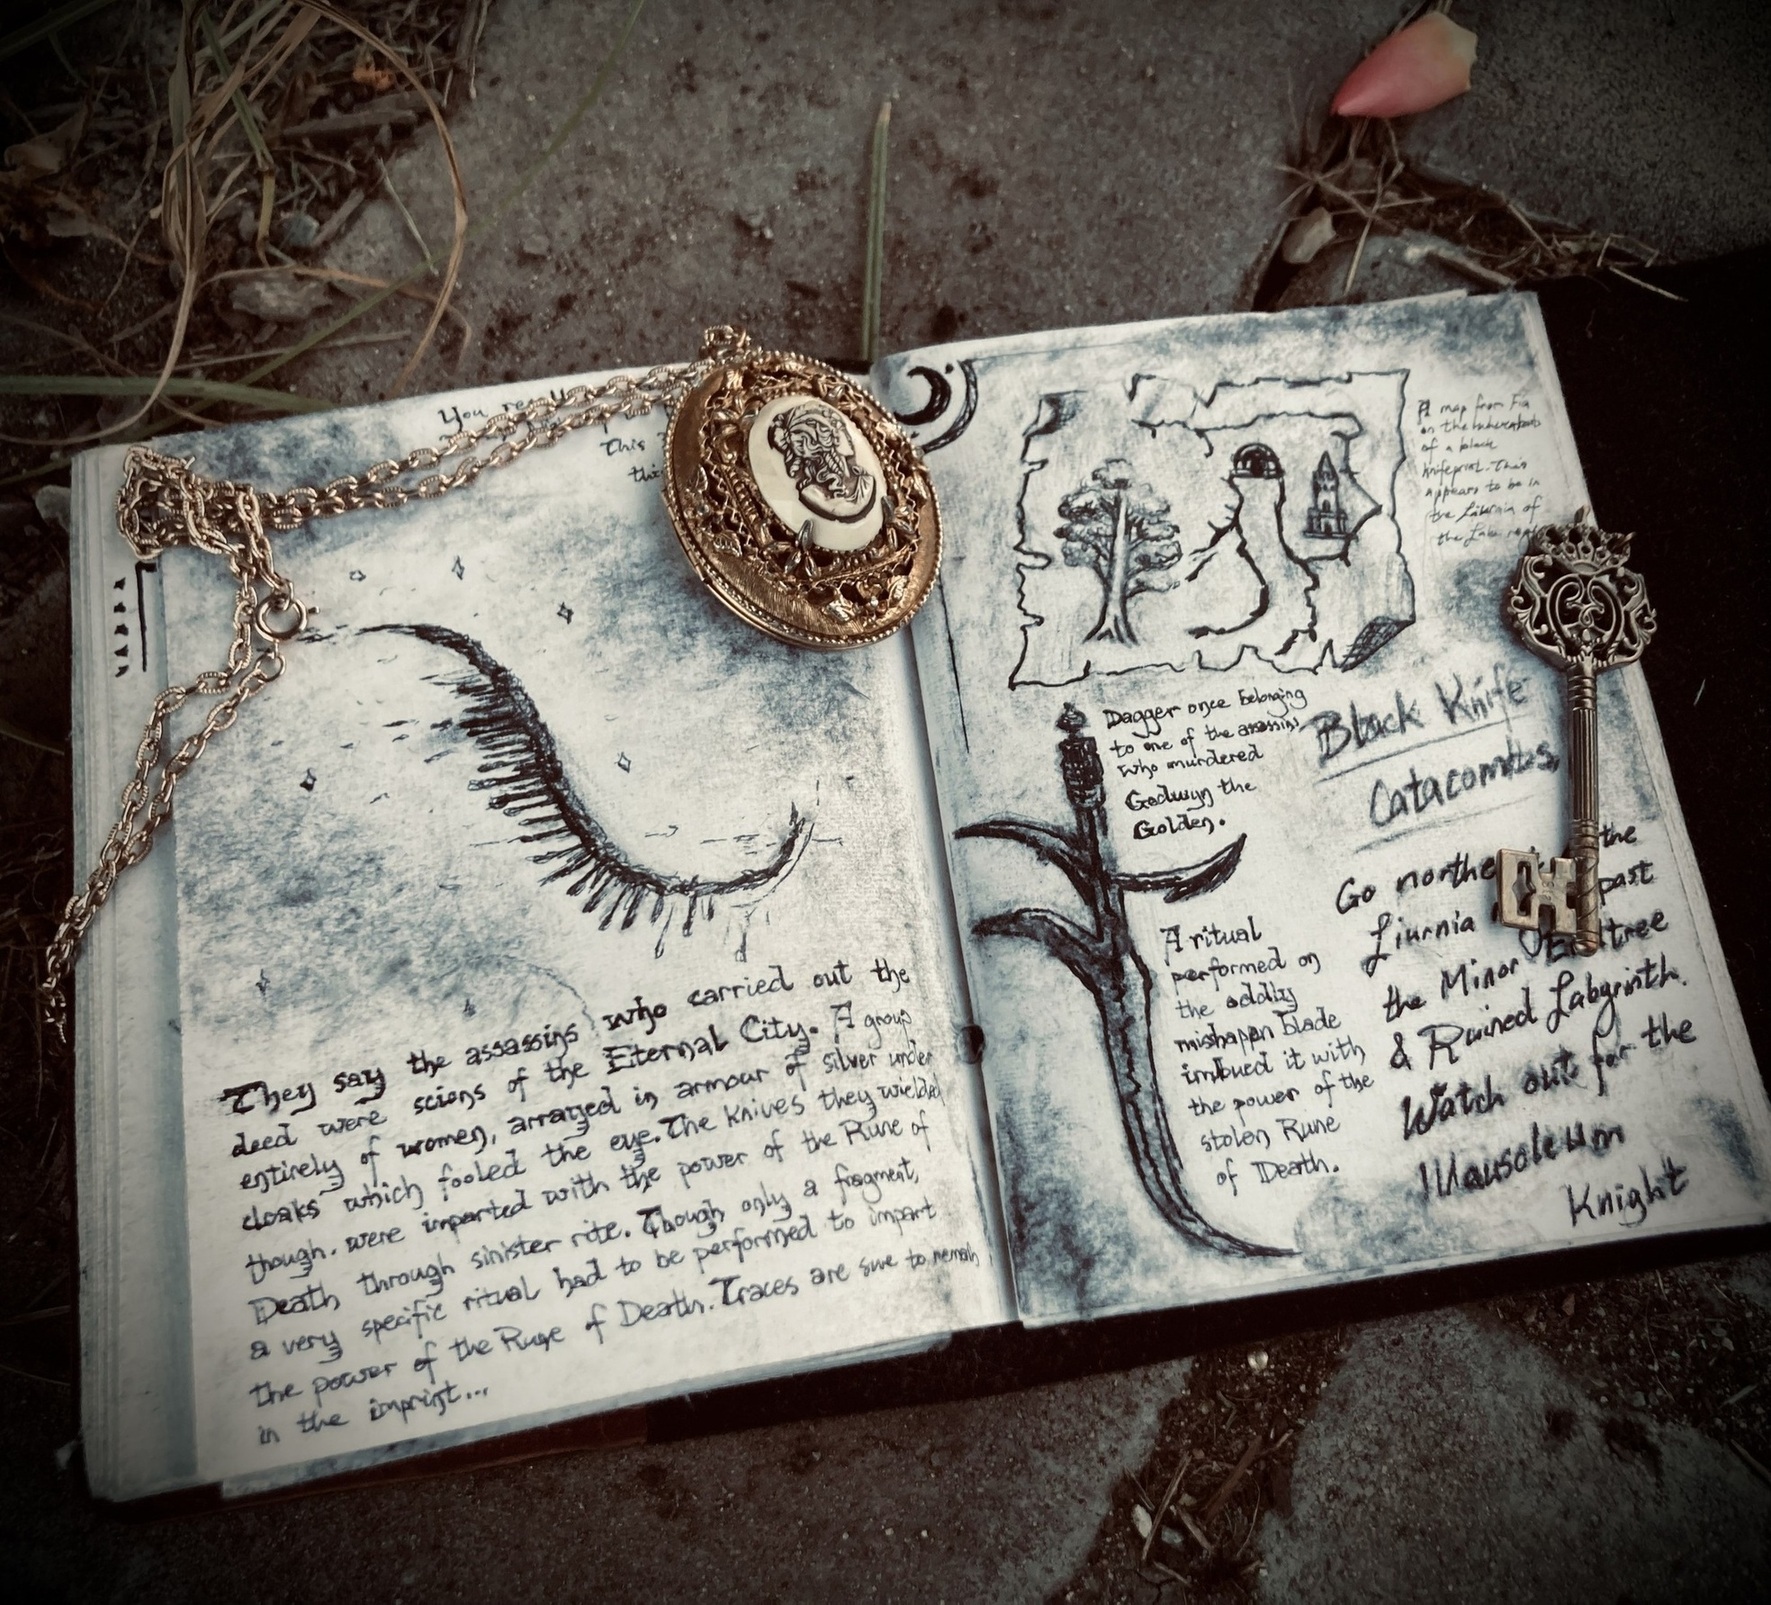 You
This
They say the assassins who carried out the
deed were scions of the Eternal City. A group
entirely of women, arranged in armour of silver under
cloaks which fooled the eye. The knives they wielded
though. were imparted with the power of the Rune of
Death through sinister rite. Though only a fragment,
a very specific ritual had to be performed to impart
the power of the Rune of Death. Traces are sure to remain
in the imprint...
A map from Fia
on the
of a black
knifeprint. This
appears to be in
the Liurnia of
the Lake
Dagger once belonging
to one of the assassins
who murdered
Godwyn the
Golden.
Black Knife
Catacombs,
A ritual
performed on
the oddly
mishappn blade
imbued it with
the power of the
stolen Rune
of Death.
Go northe the
Liurnia past
the Minor Erdtree
& Ruined Labyrinth.
Watch out for the
Mausoleum
Knight